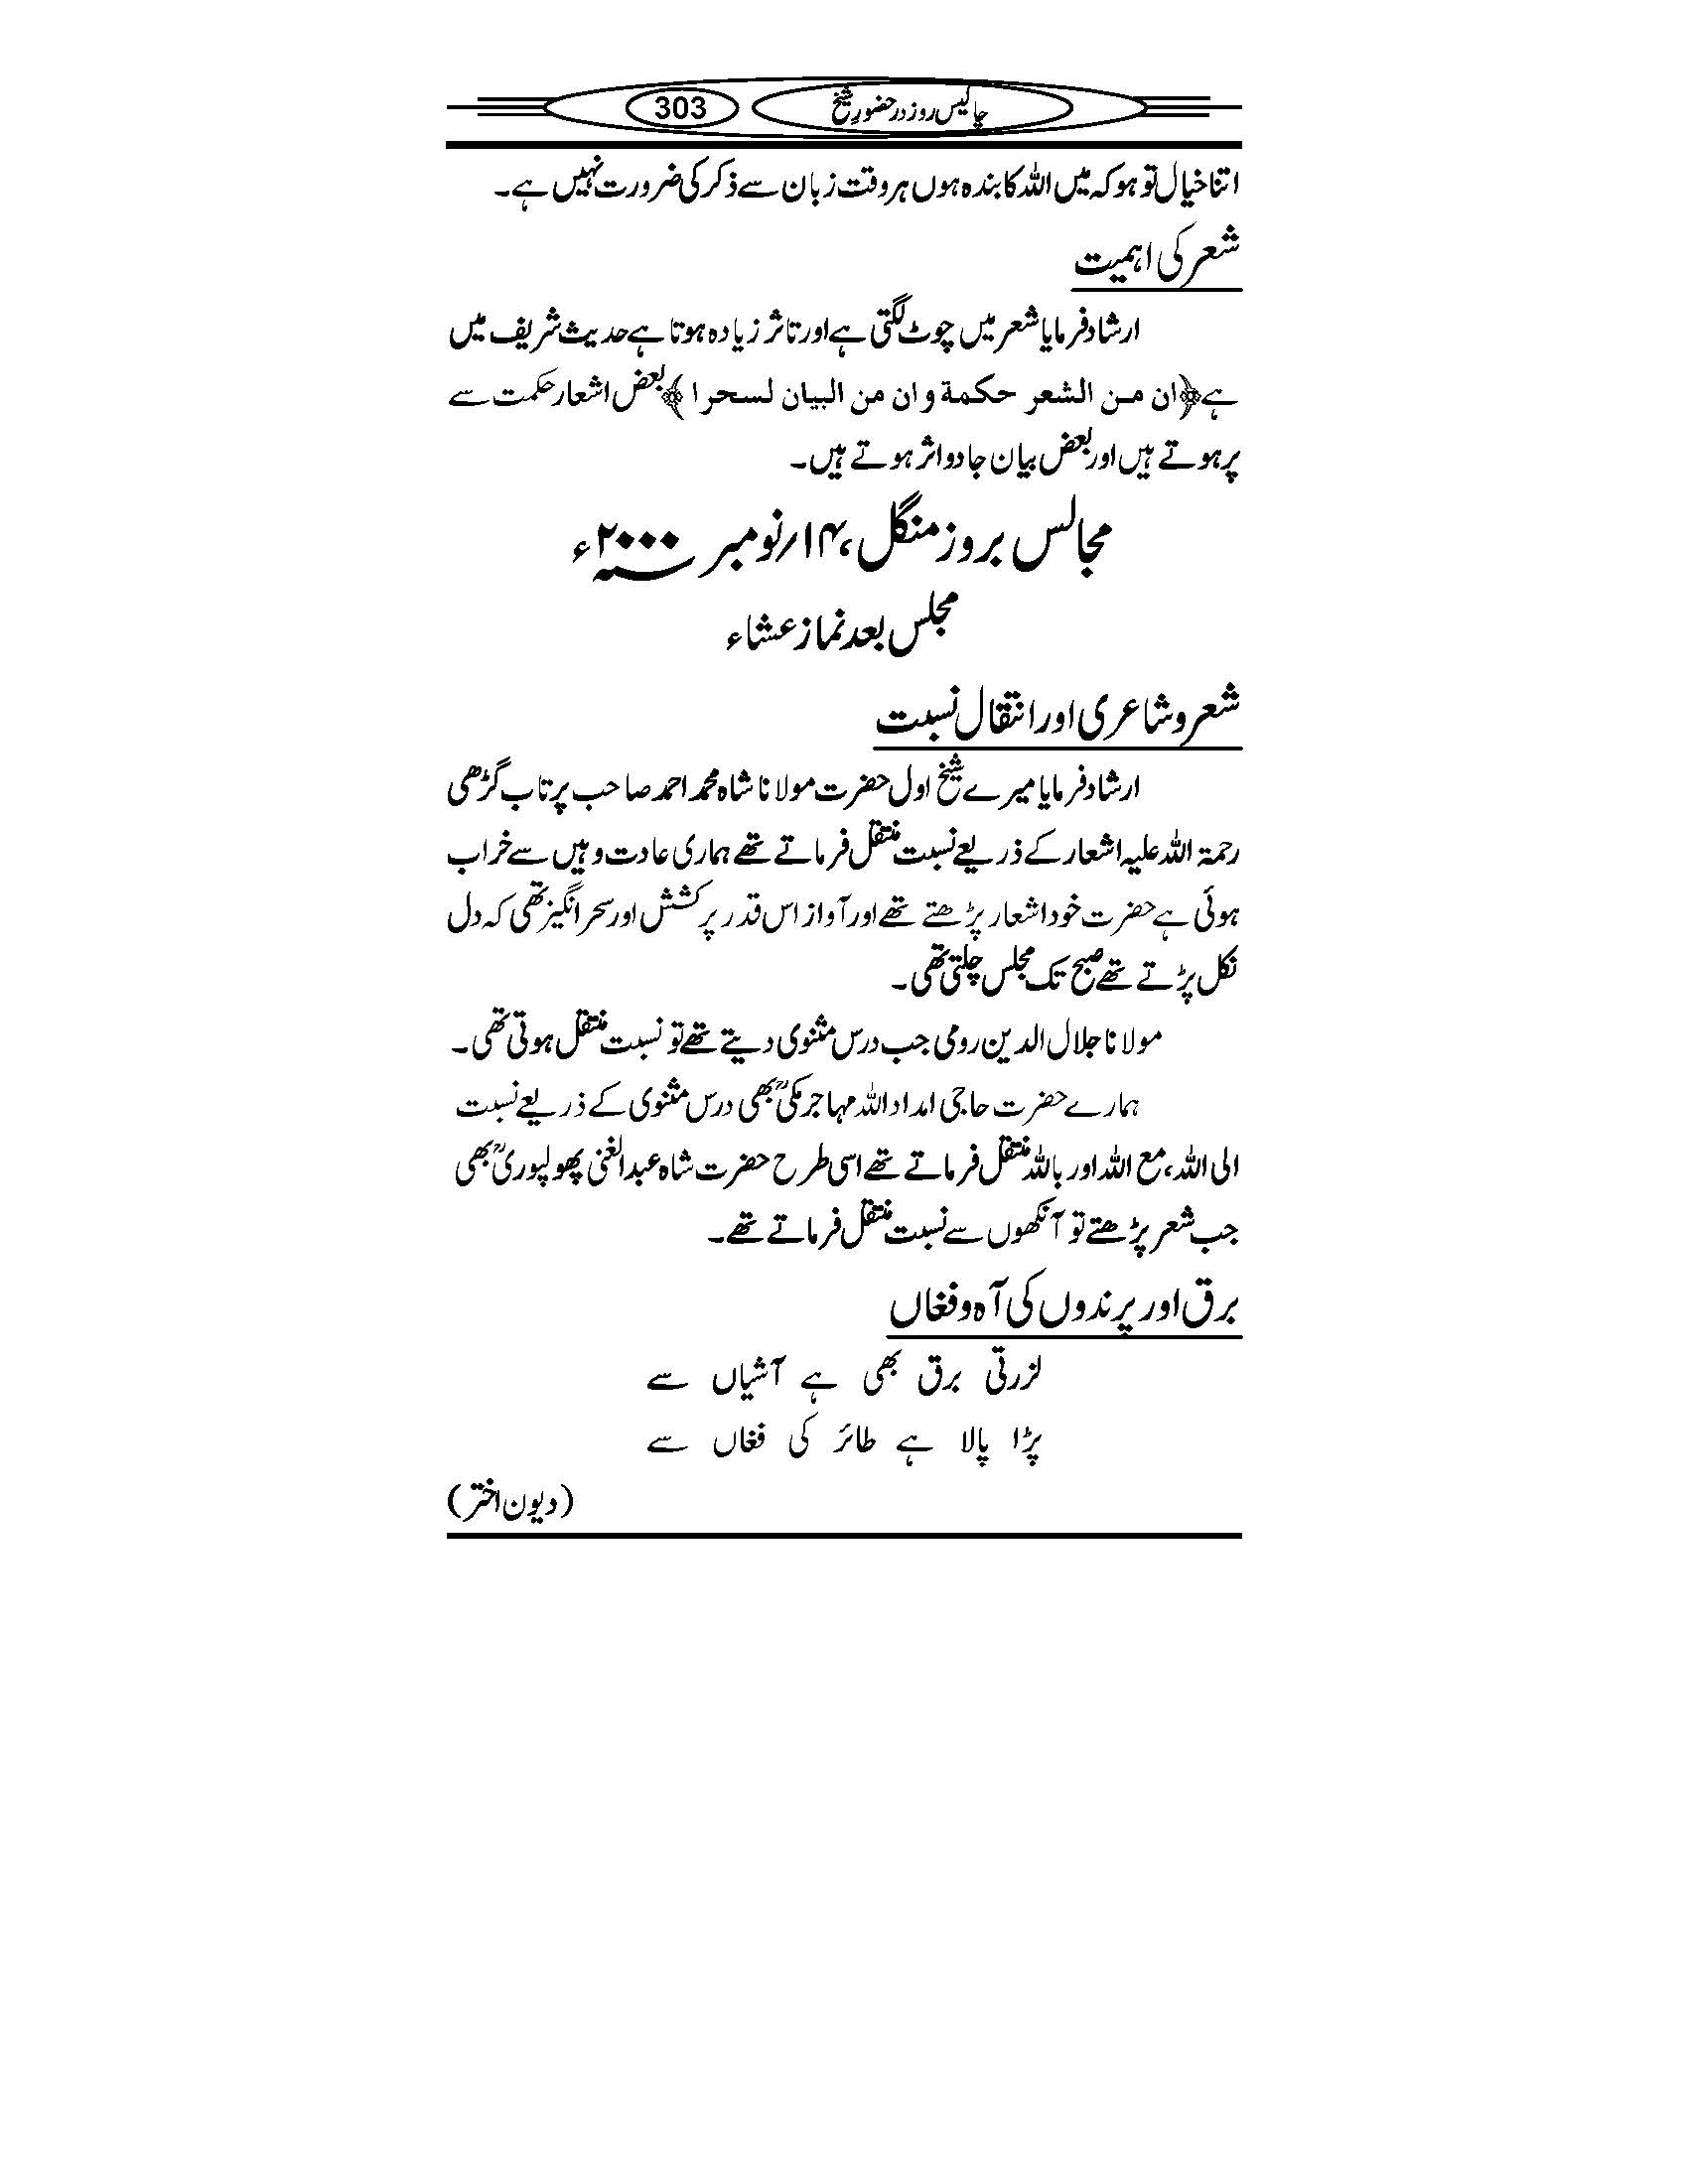 چالیس روز در حضورِ شیخ 303
اتنا خیال تو ہو کہ میں اللہ کا بندہ ہوں ہر وقت زبان سے ذکر کی ضرورت نہیں ہے۔
شعر کی اہمیت
ارشاد فرمایا شعر میں چوٹ لگتی ہے اور تاثر زیادہ ہوتا ہے حدیث شریف میں
ہے ﴿ان من الشعر حکمة و ان من البیان لسحرا﴾ بعض اشعار حکمت سے
پر ہوتے ہیں اور بعض بیان جادو اثر ہوتے ہیں۔
مجالس بروز منگل، ۱۴/نومبر ۲۰۰۰ء
مجلس بعد نماز عشاء
شعر و شاعری اور انتقال نسبت
ارشاد فرمایا میرے شیخ اول حضرت مولانا شاہ محمد احمد صاحب پرتاب گڑھی
رحمۃ اللہ علیہ اشعار کے ذریعے نسبت منتقل فرماتے تھے ہماری عادت وہیں سے خراب
ہوئی ہے حضرت خود اشعار پڑھتے تھے اور آواز اس قدر پرکشش اور سحر انگیز تھی کہ دل
نکل پڑتے تھے صبح تک مجلس چلتی تھی۔
مولانا جلال الدین رومی جب درس مثنوی دیتے تھے تو نسبت منتقل ہوتی تھی۔
ہمارے حضرت حاجی امداد اللہ مہاجر مکیؒ بھی درس مثنوی کے ذریعے نسبت
الی اللہ، مع اللہ اور باللہ منتقل فرماتے تھے اسی طرح حضرت شاہ عبدالغنی پھولپوریؒ بھی
جب شعر پڑھتے تو آنکھوں سے نسبت منتقل فرماتے تھے۔
برق اور پرندوں کی آہ و فغاں
لزرتی برق بھی ہے آشیاں سے
پڑا پالا ہے طائر کی فغاں سے
(دیون اختر)